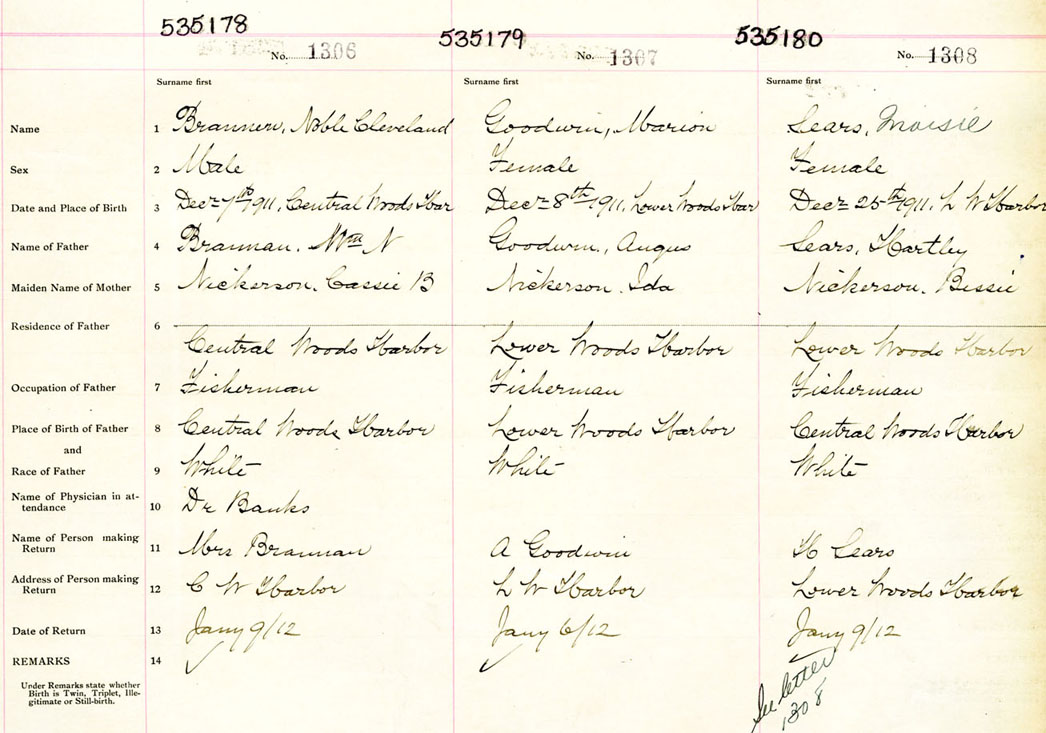 535178 535179 535180
No. 1306 No. 1307 No. 1308
Surname first Surname first Surname first
Name 1 Brannen, Noble Cleveland Goodwin, Marion Sears, Moisie
Sex 2 Male Female Female
Date and Place of Birth 3 Decr 7th 1911, Central Woods Har Decr 8th 1911, Lower Woods Har Decr 25th 1911. L W Harbor
Name of Father 4 Brannan. Wm N Goodwin, Angus Sears, Hartley
Maiden Name of Mother 5 Nickerson. Cassie B Nickerson. Ida Nickerson. Bessie
Residence of Father 6
Central Woods Harbor Lower Woods Harbor Lower Woods Harbor
Occupation of Father 7 Fisherman Fisherman Fisherman
Place of Birth of Father 8 Central Woods Harbor Lower Woods Harbor Central Woods Harbor
and
Race of Father 9 White White White
Name of Physician in at-
tendance 10 Dr Banks
Name of Person making
Return 11 Mrs Brannan A Goodwin H Sears
Address of Person making
Return 12 C W Harbor L W Harbor Lower Woods Harbor
Date of Return 13 Jany 9/12 Jany 6/12 Jany 9/12
REMARKS 14
See letter
1308
Under Remarks state whether
Birth is Twin, Triplet, Ille-
gitimate or Still-birth.